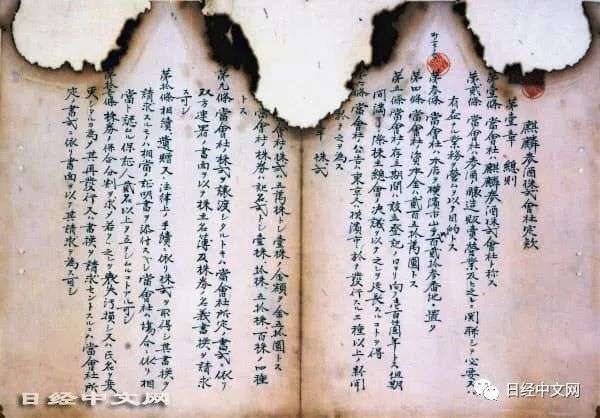 麒麟麥酒株式會社定款
第壹章 總則
第壹條 當會社ハ麒麟麥酒株式會社ト称ス
第貳條 當會社ハ麥酒ノ醸造販賣營業及ヒ之ニ関聯シテ必要又ハ
有益ナル業務ヲ營ムヲ以テ目的トス
第参條 當會社ハ本店ヲ横濱市山手百貳拾参番地ニ置ク
第四條 當會社ノ資本金ハ貳百五拾萬圓トス
第五條 當會社ノ存立期間ハ設立登記ノ日ヨリ向フ壹百箇年トス但期
間満了ノ際株主總會ノ決議ヲ以テ之レヲ延長スルコトヲ得
六條 當會社ノ公告ハ東京又ハ横濱市ニ於テ發行スル壹種以上ノ新聞
紙ニ於テ之ヲ為ス
章 株式
會社ノ株式ハ五萬株トシ壹株ノ金額ヲ金五拾圓トス
當會社ノ株券ハ記名式トシ壹株 拾株 五拾株 百株ノ四種
トス
第九條 當會社ノ株式ヲ譲渡シタルトキハ當會社所定ノ書式ニ依リ
双方連署ノ書面ヲ以テ株主名簿及株券ノ名義書換ヲ請求
スヘシ
第拾條 相續、遺贈又ハ法律上ノ手續ニ依リ株式ヲ取得シ其書換ヲ
請求スルモノハ相當ノ証明書ヲ添付スヘシ當會社ノ場合ニ依リ相
當ト認ムル保証人貳名以上ヲ立テシムルコトアルヘシ
株券ノ併合分割ヲ求メ若クハ之ヲ毀損汚損シ又ハ氏名ヲ變
更シタル為メ其再發行又ハ書換ヲ請求セントスルニハ當會社所
定ノ書式ニ依リ書面ヲ以テ其請求ヲ為スヘシ
日经中文网
日经中文网